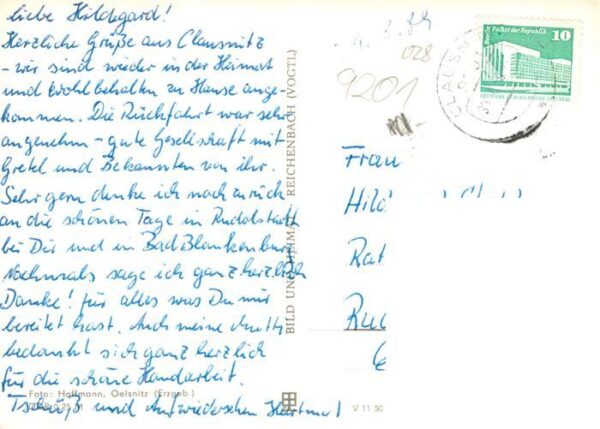 liebe Hildegard!
Herzliche Grüße aus Clausnitz
- wir sind wieder in der Heimat
und wohlbehalten zu Hause ange-
kommen. Die Rückfahrt war sehr
angenehm - gute Gesellschaft mit
Gretel und Bekannten von ihr.
Sehr gern denke ich noch zurück
an die schönen Tage in Rudolstadt
bei Dir und in Bad Blankenburg
Nochmals sage ich ganz herzlich
Danke! für alles was Du mir
bereitet hast. Auch meine
bedankt sich ganz herzlich
für die schöne Handarbeit.
Foto: Hoffmann, Oelsnitz (Erzgeb.)
Tschüß und Aufwiedersehen Hartmut
BILD UND HEIMAT REICHENBACH (VOGTL)
V 11 50
028
9201
10
Palast der Republik
CLAUSN
Frau
Hild
Rat